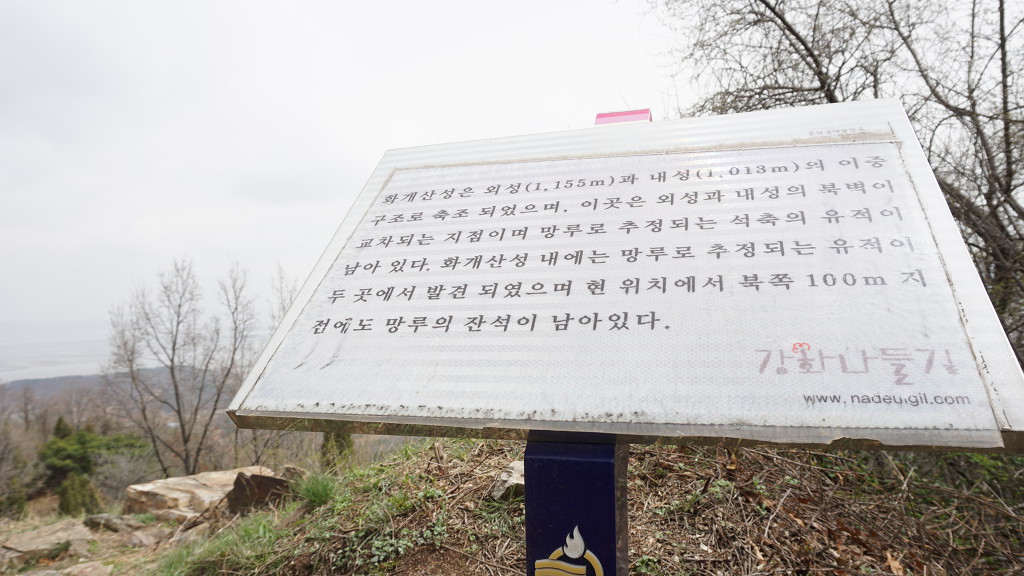 화개산성은 외성(1,155m)과 내성(1,013m)의 이중
구조로 축조 되었으며, 이곳은 외성과 내성의 북벽이
교차되는 지점이며 망루로 추정되는 석축의 유적이
남아 있다. 화개산성 내에는 망루로 추정되는 유적이
두 곳에서 발견 되였으며 현 위치에서 북쪽 100m 지
전에도 망루의 잔석이 남아있다.
강화나들길
www.nadeulgil.com